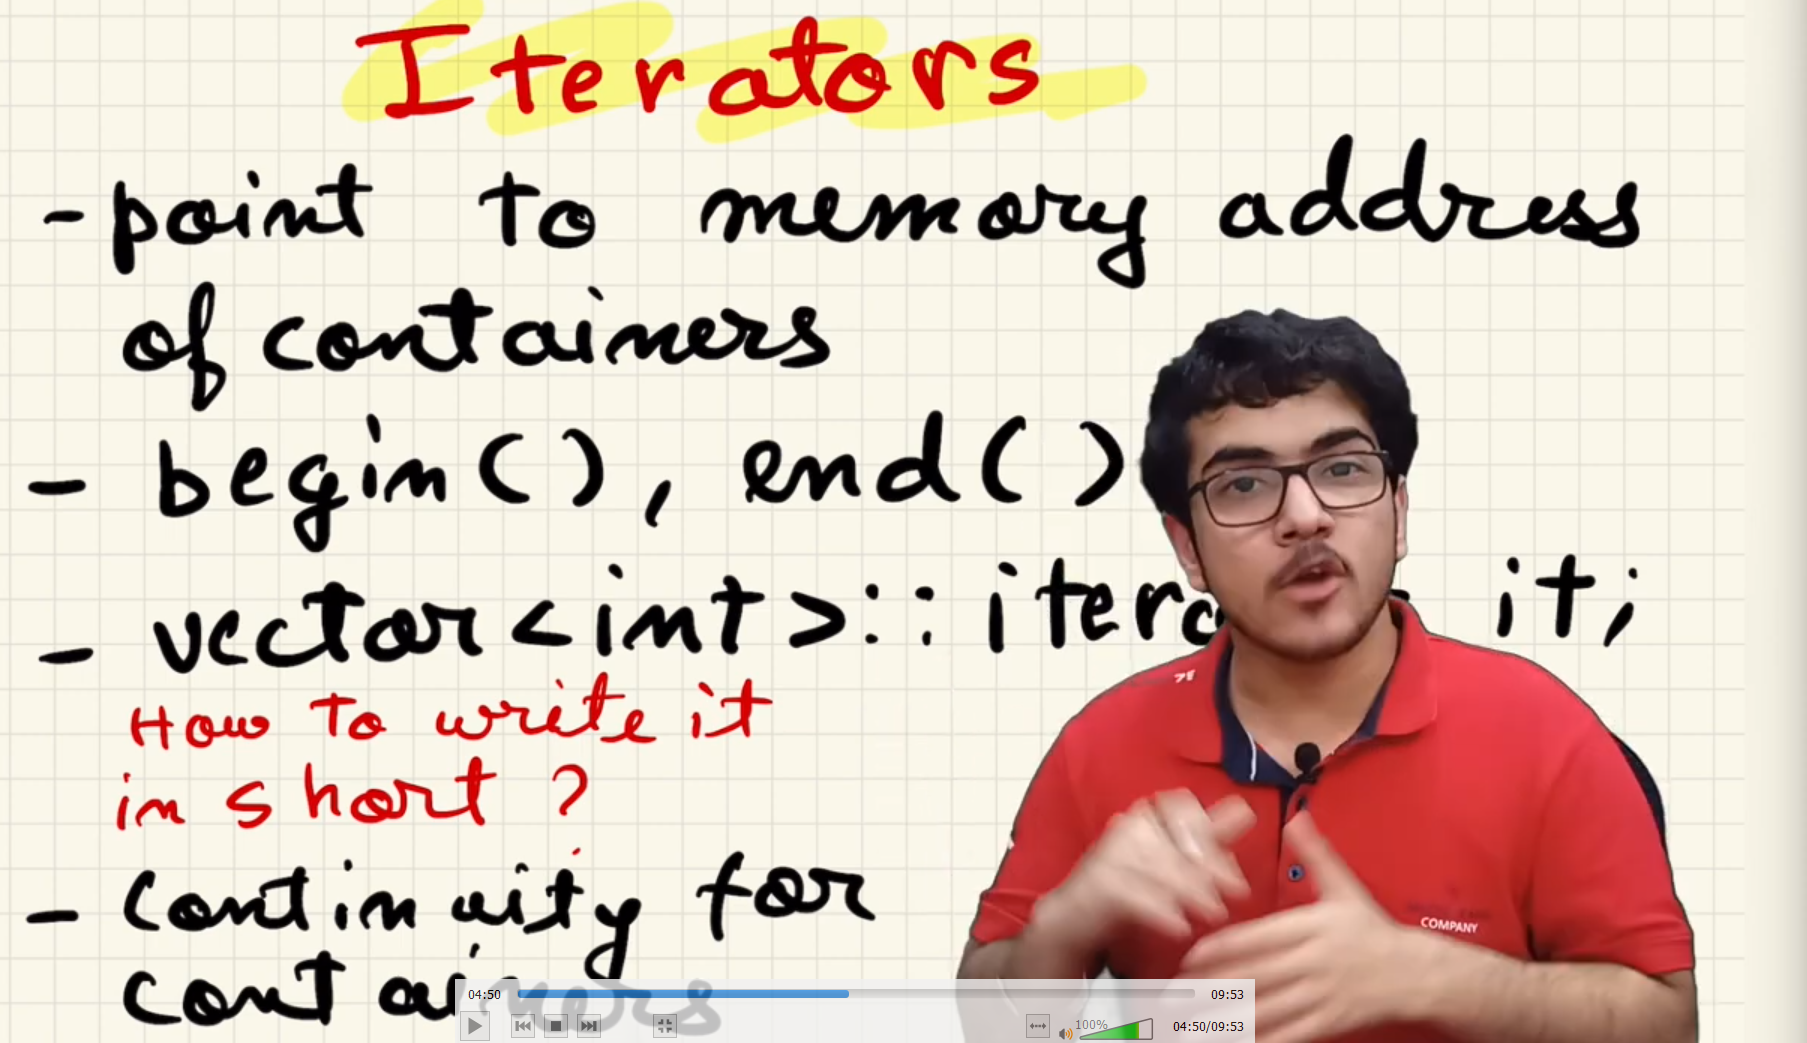 Iterators
- point to memory address
of containers
- begin(), end()
- vector<int>:: iterator it;
How to write it
in short?
- Continuity for
containers
COMPANY
04:50
09:53
100%
04:50/09:53